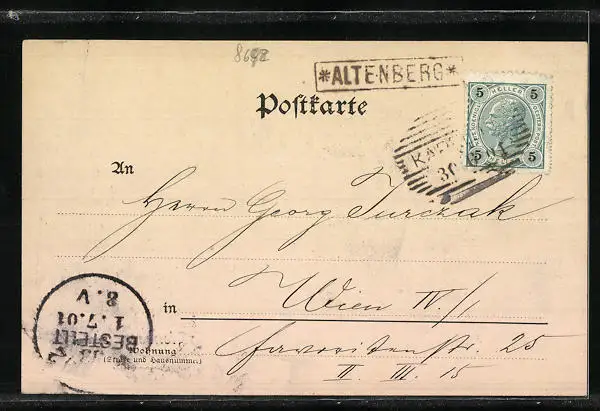 8692
*ALTENBERG*
Postkarte
5 HELLER 5
5 5
30
An
Herrn Georg Turczak
in Wien IV/1
Wohnung
(Straße und Hausnummer)
Favoritenstr. 25
II. III. 15
BESTELLT
1.7.01
8.V